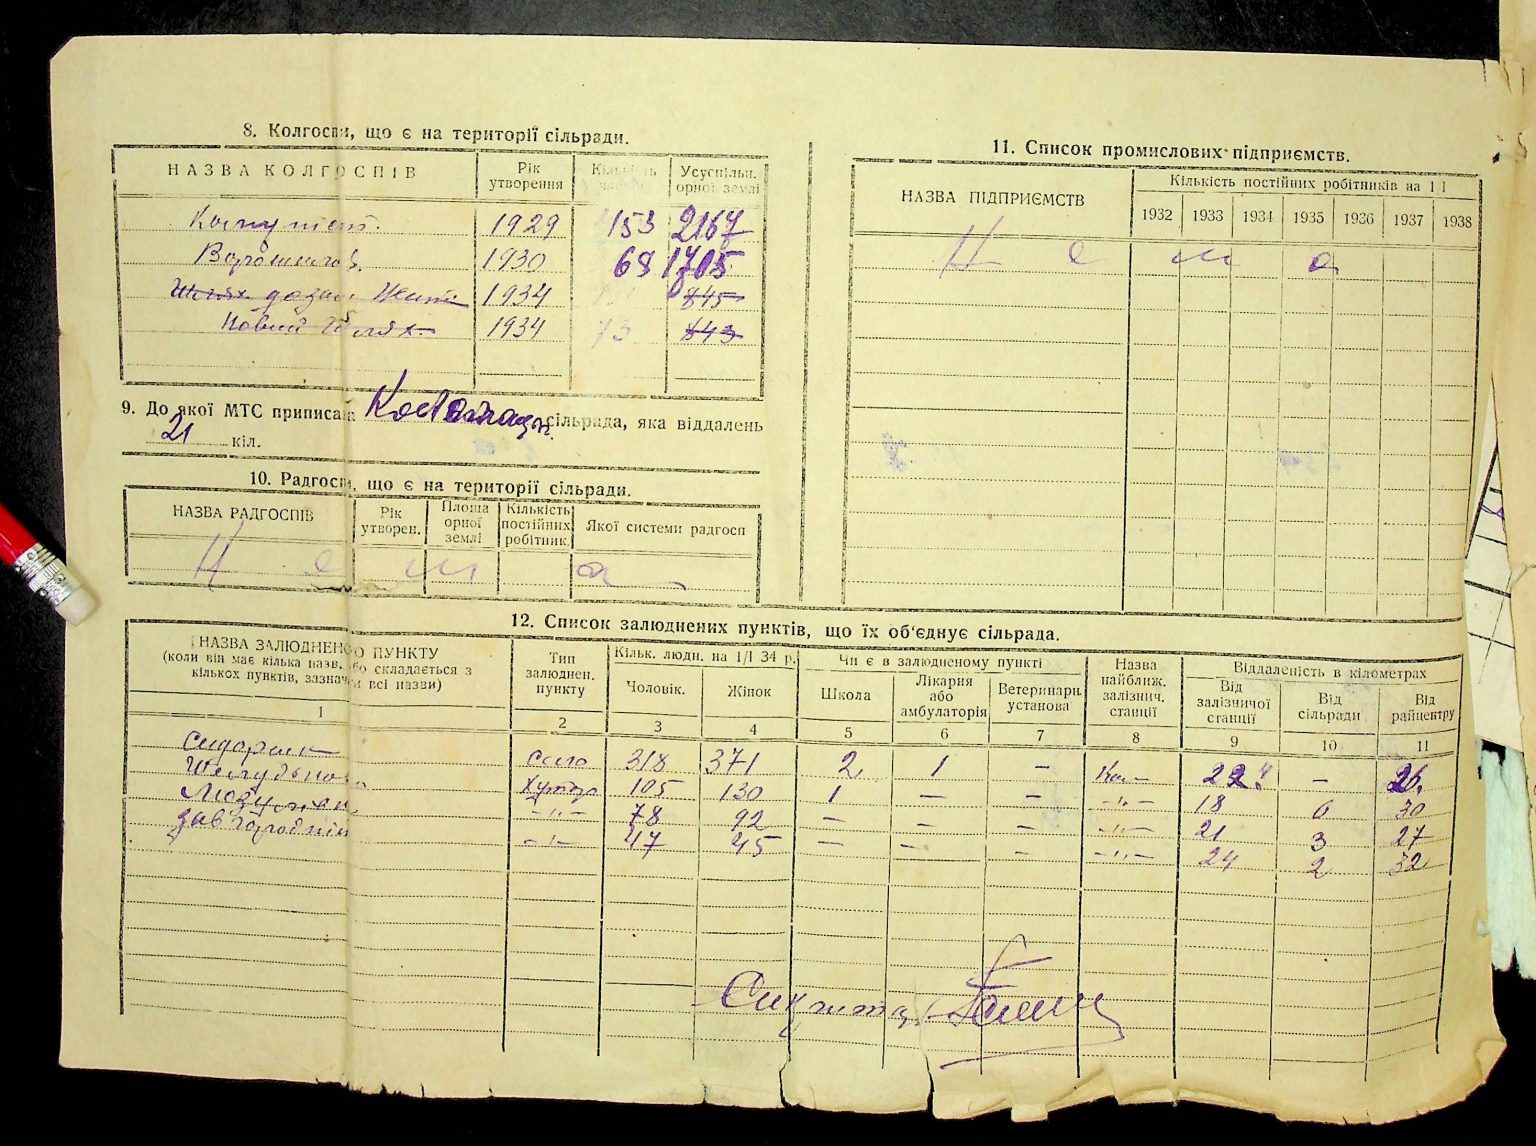 8. Колгоспи, що є на території сільради.
НАЗВА КОЛГОСПІВ
Рік утворення
Кількість
Усуспільн. орної землі
1929 153 2167
1930 68 1705
1934 845
Новий Шлях 1934 73 843
9. До якої МТС приписана сільрада, яка віддалень
21 кіл.
10. Радгоспи, що є на території сільради.
НАЗВА РАДГОСПІВ
Рік утворен.
Площа орної землі
Кількість постійних робітник.
Якої системи радгосп
Н е м а
11. Список промислових підприємств.
НАЗВА ПІДПРИЄМСТВ
Кількість постійних робітників на 1 І
1932 1933 1934 1935 1936 1937 1938
Н е м а
12. Список залюднених пунктів, що їх об'єднує сільрада.
НАЗВА ЗАЛЮДНЕНОГО ПУНКТУ
(коли він має кілька назв, або складається з
кількох пунктів, зазначи всі назви)
Тип залюднен. пункту
Кільк. людн. на 1/І 34 р.
Чоловік.
Жінок
Чи є в залюдненому пункті
Школа
Лікарня або амбулаторія
Ветеринарн. установа
Назва найближ. залізнич. станції
Віддаленість в кілометрах
Від залізничої станції
Від сільради
Від райцентру
1 2 3 4 5 6 7 8 9 10 11
село 318 371 2 1 — — 26.
хутор 105 130 1 — — —„— 18 6 30
—„— 78 92 — — — —„— 21 3 27
—„— 47 45 — — — —„— 24 2 32